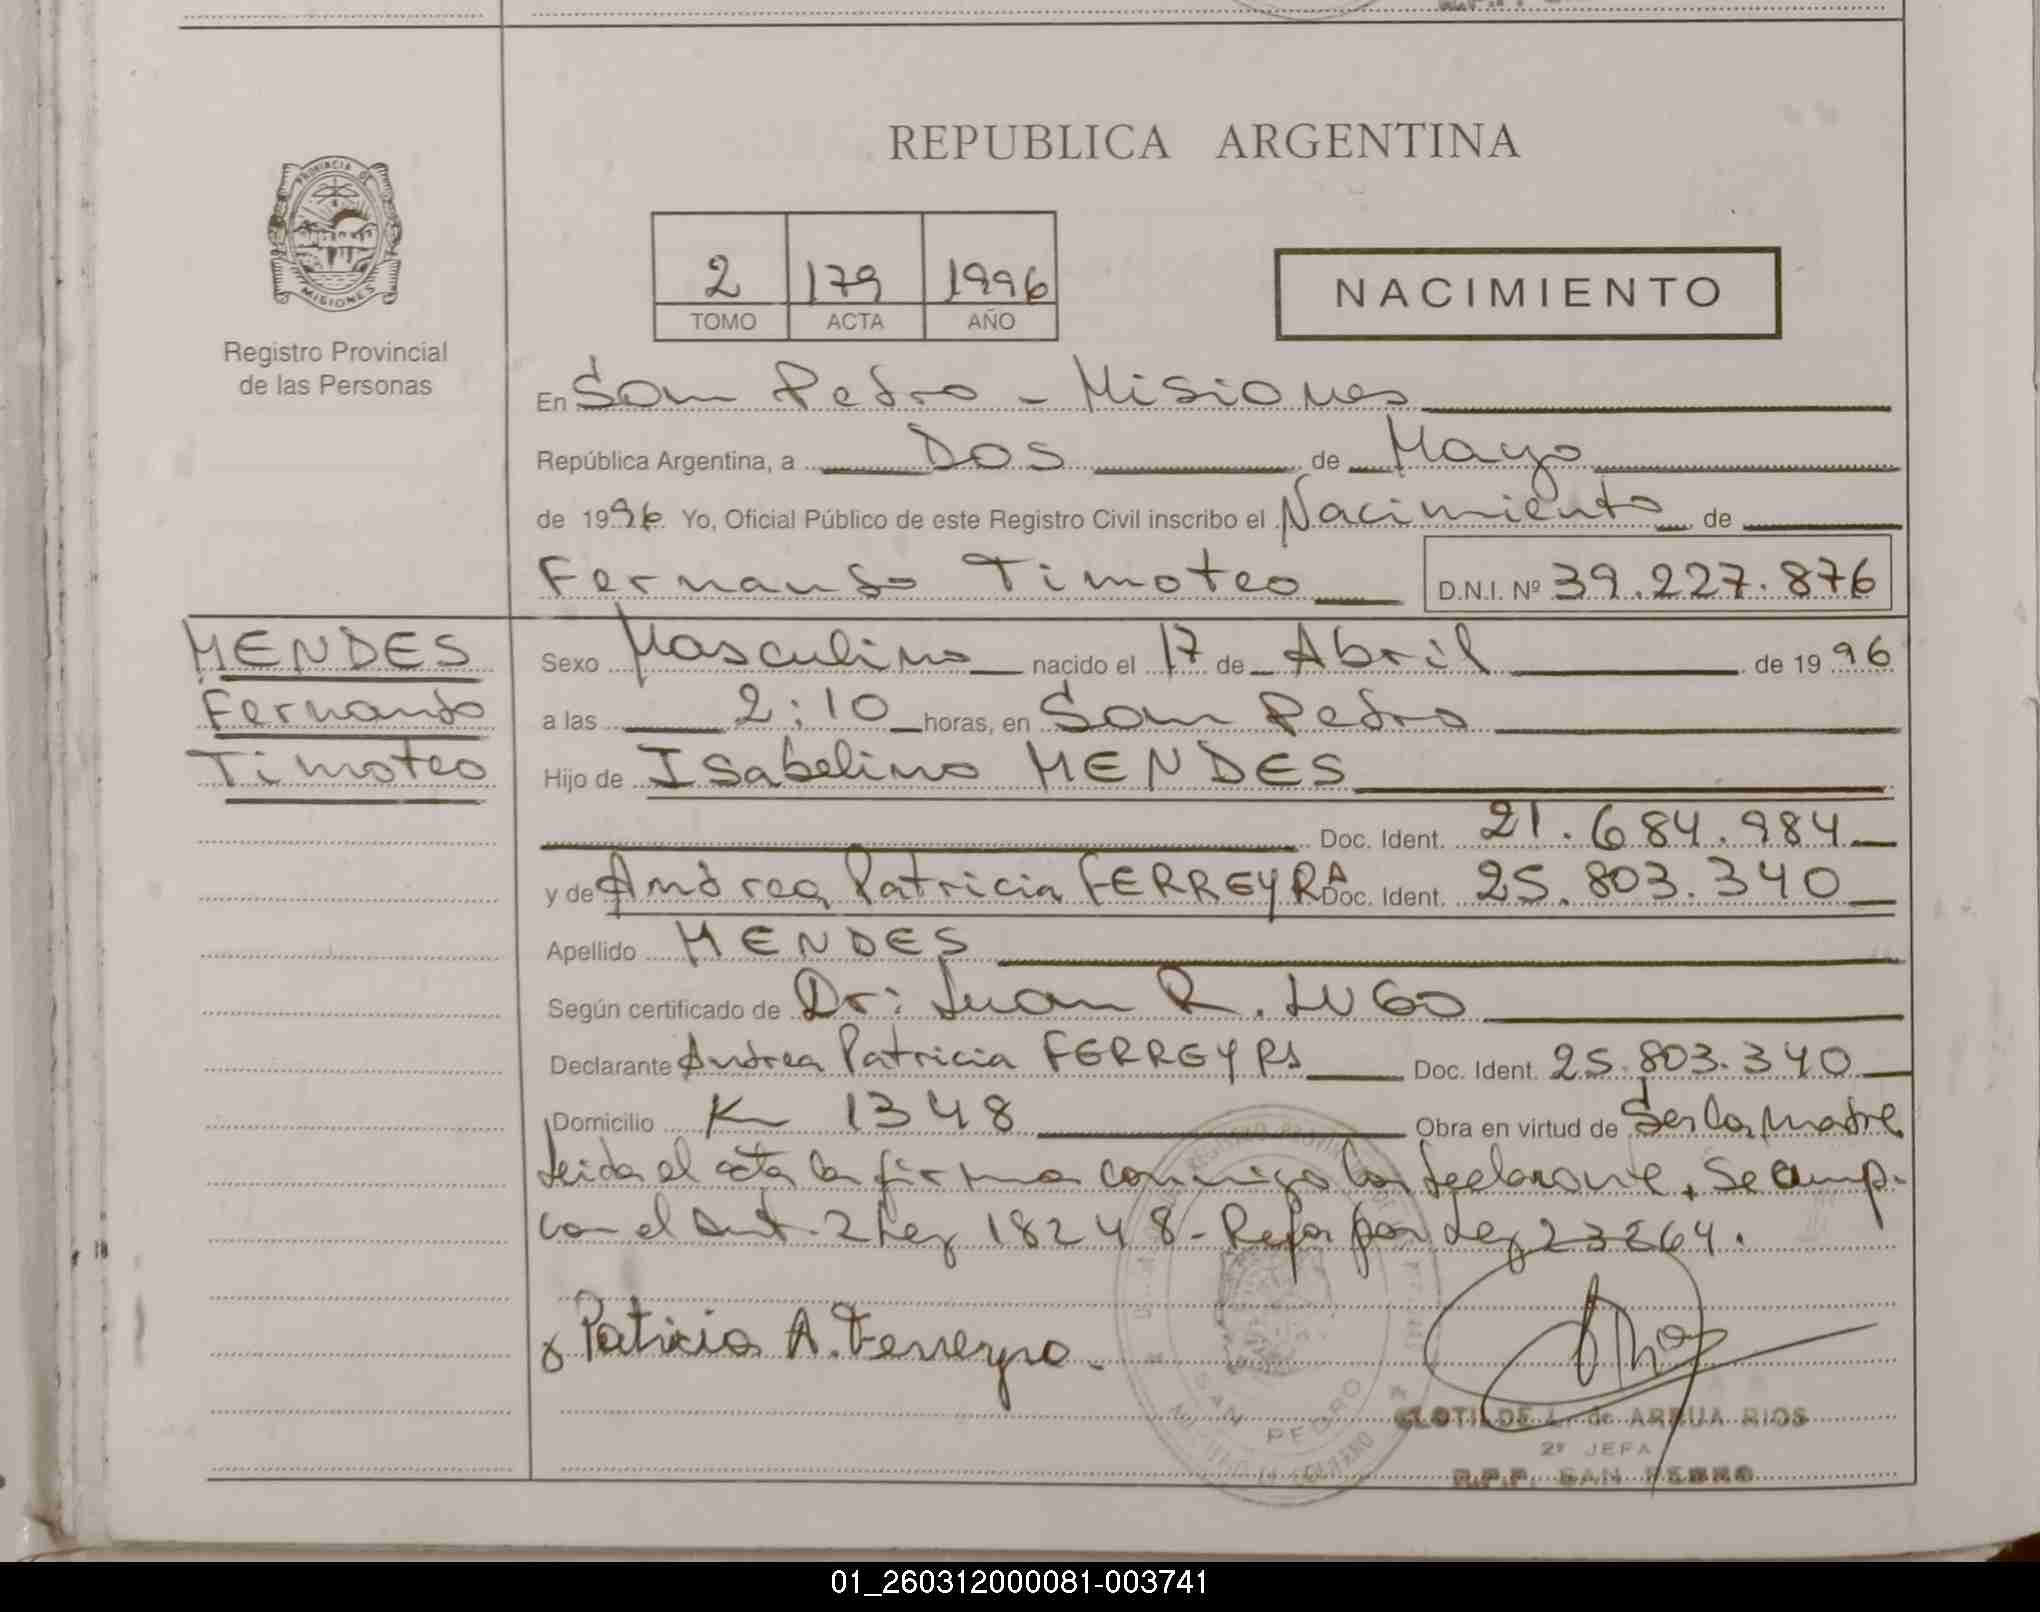 REPUBLICA ARGENTINA
PROVINCIA DE
MISIONES
Registro Provincial
de las Personas
2 179 1996
TOMO ACTA AÑO
NACIMIENTO
En San Pedro - Misiones
República Argentina, a Dos de Mayo
de 1996. Yo, Oficial Público de este Registro Civil inscribo el Nacimiento de
Fernando Timoteo D.N.I. Nº 39.227.876
MENDES
Fernando
Timoteo
Sexo Masculino nacido el 17 de Abril de 1996
a las 2:10 horas, en San Pedro
Hijo de Isabelino MENDES
Doc. Ident. 21.684.984
y de Andrea Patricia FERREYRA Doc. Ident. 25.803.340
Apellido MENDES
Según certificado de Dr: Juan R. LUGO
Declarante Andrea Patricia FERREYRA Doc. Ident. 25.803.340
Domicilio Km 1348 Obra en virtud de Ser la madre
Leida el acta la firma conmigo la declarante, Se cump.
con el Art. 2 Ley 18248 - Refor por Ley 23264.
Patricia A. Ferreyra.
SAN PEDRO
CLOTILDE L. de ARRUA RIOS
2º JEFA
R.P.P. SAN PEDRO
01_260312000081-003741